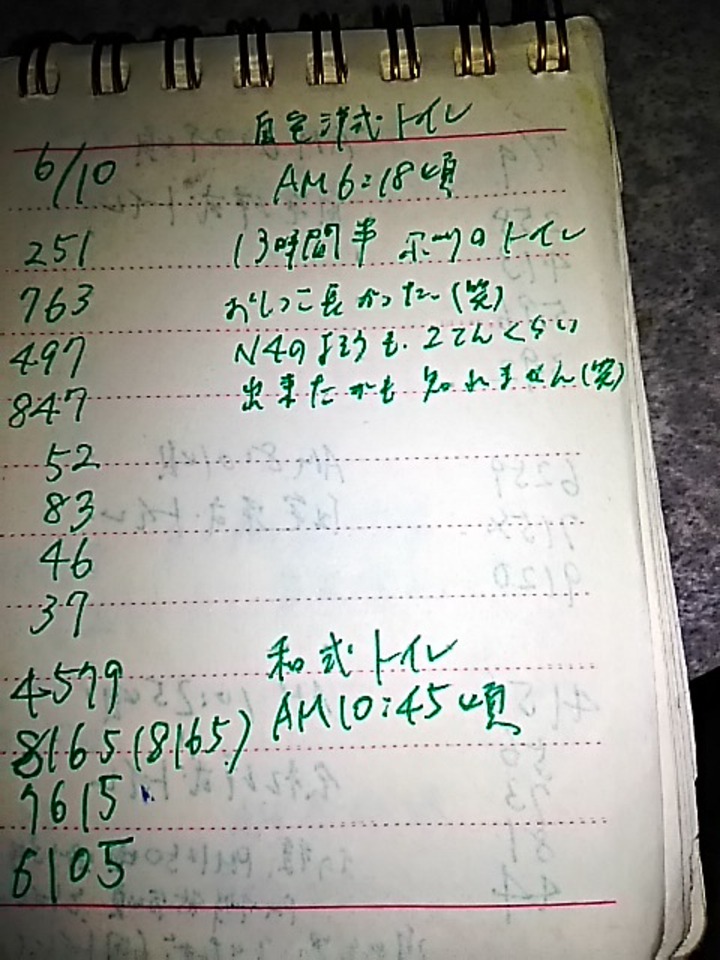 自宅洋式トイレ
6/10 AM6:18頃
251 13時間半 ホツのトイレ
763 おしっこ長かった(笑)
497 N4のようも、2てんくらい
847 出来たかも知れません(笑)
52
83
46
37
4579 和式トイレ
8165(8165) AM10:45頃
7615
6105